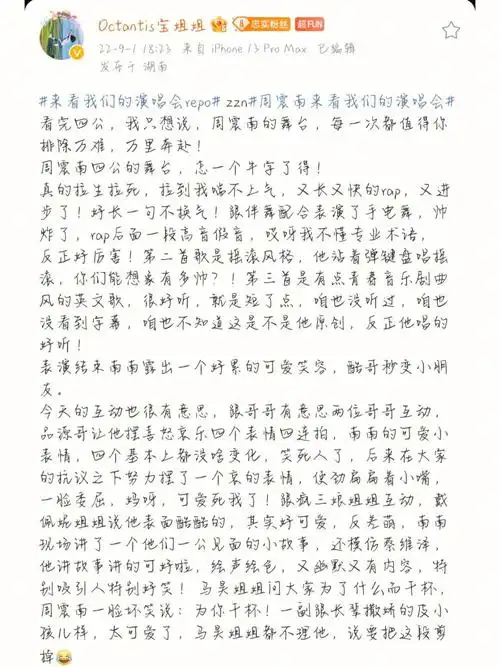 Octantis宝姐姐 忠实粉丝 超FUN
22-9-1 18:23 来自 iPhone 13 Pro Max 已编辑
发布于 湖南
#来看我们的演唱会repo# zzn#周震南来看我们的演唱会#
看完四公，我只想说，周震南的舞台，每一次都值得你
排除万难，万里奔赴！
周震南四公的舞台，怎一个牛字了得！
真的拉生拉死，拉到我喘不上气，又长又快的rap，又进
步了！好长一句不换气！跟伴舞配合表演了手电舞，帅
炸了，rap后面一段高音假音，哎呀我不懂专业术语，
反正好厉害！第二首歌是摇滚风格，他站着弹键盘唱摇
滚，你们能想象有多帅？！第三首是有点青春音乐剧曲
风的英文歌，很好听，就是短了点，咱也没听过，咱也
没看到字幕，咱也不知道这是不是他原创，反正他唱的
好听！
表演结束南南露出一个好累的可爱笑容，酷哥秒变小朋
友。
今天的互动也很有意思，跟哥哥有意思两位哥哥互动，
品源哥让他摆喜怒哀乐四个表情四连拍，南南的可爱小
表情，四个基本上都没啥变化，笑死人了，后来在大家
的抗议之下努力摆了一个哀的表情，使劲扁扁着小嘴，
一脸委屈，妈呀，可爱死我了！跟疯三娘姐姐互动，戴
佩妮姐姐说他表面酷酷的，其实好可爱，反差萌，南南
现场讲了一个他们一公见面的小故事，还模仿蔡维泽，
他讲故事讲的可好啦，绘声绘色，又幽默又有内容，特
别吸引人特别好笑！马吴姐姐问大家为了什么而干杯，
周震南一脸坏笑说：为你干杯！一副跟长辈撒娇的皮小
孩儿样，太可爱了，马吴姐姐都不理他，说要把这段剪
掉😂